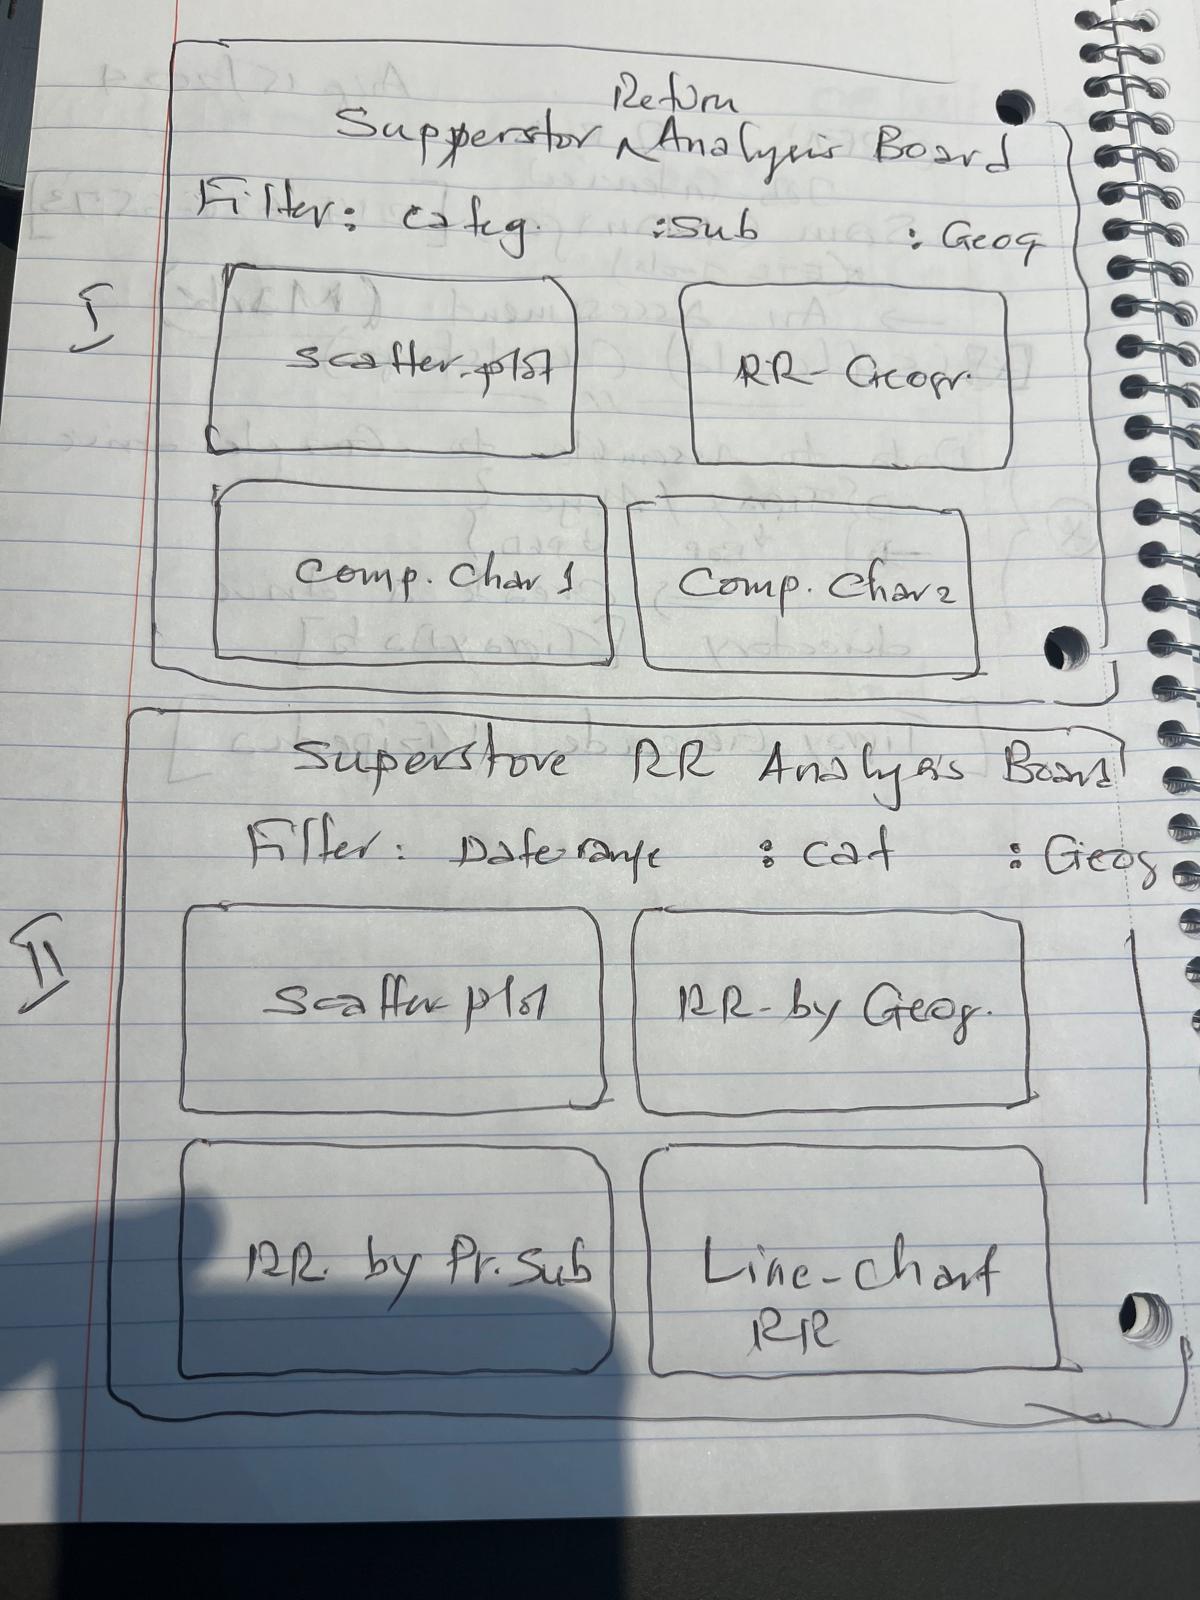 Return
Supperstor ^ Analysis Board
Filter: categ. :Sub : Geog
I
Scatter-plot
RR- Geogr.
Comp. Char 1
Comp. Char 2
Superstore RR Analysis Board
Filter: Date range : Cat : Geog
II
Scatter plot
RR- by Geog.
RR. by Pr. Sub
Line-Chart
RR